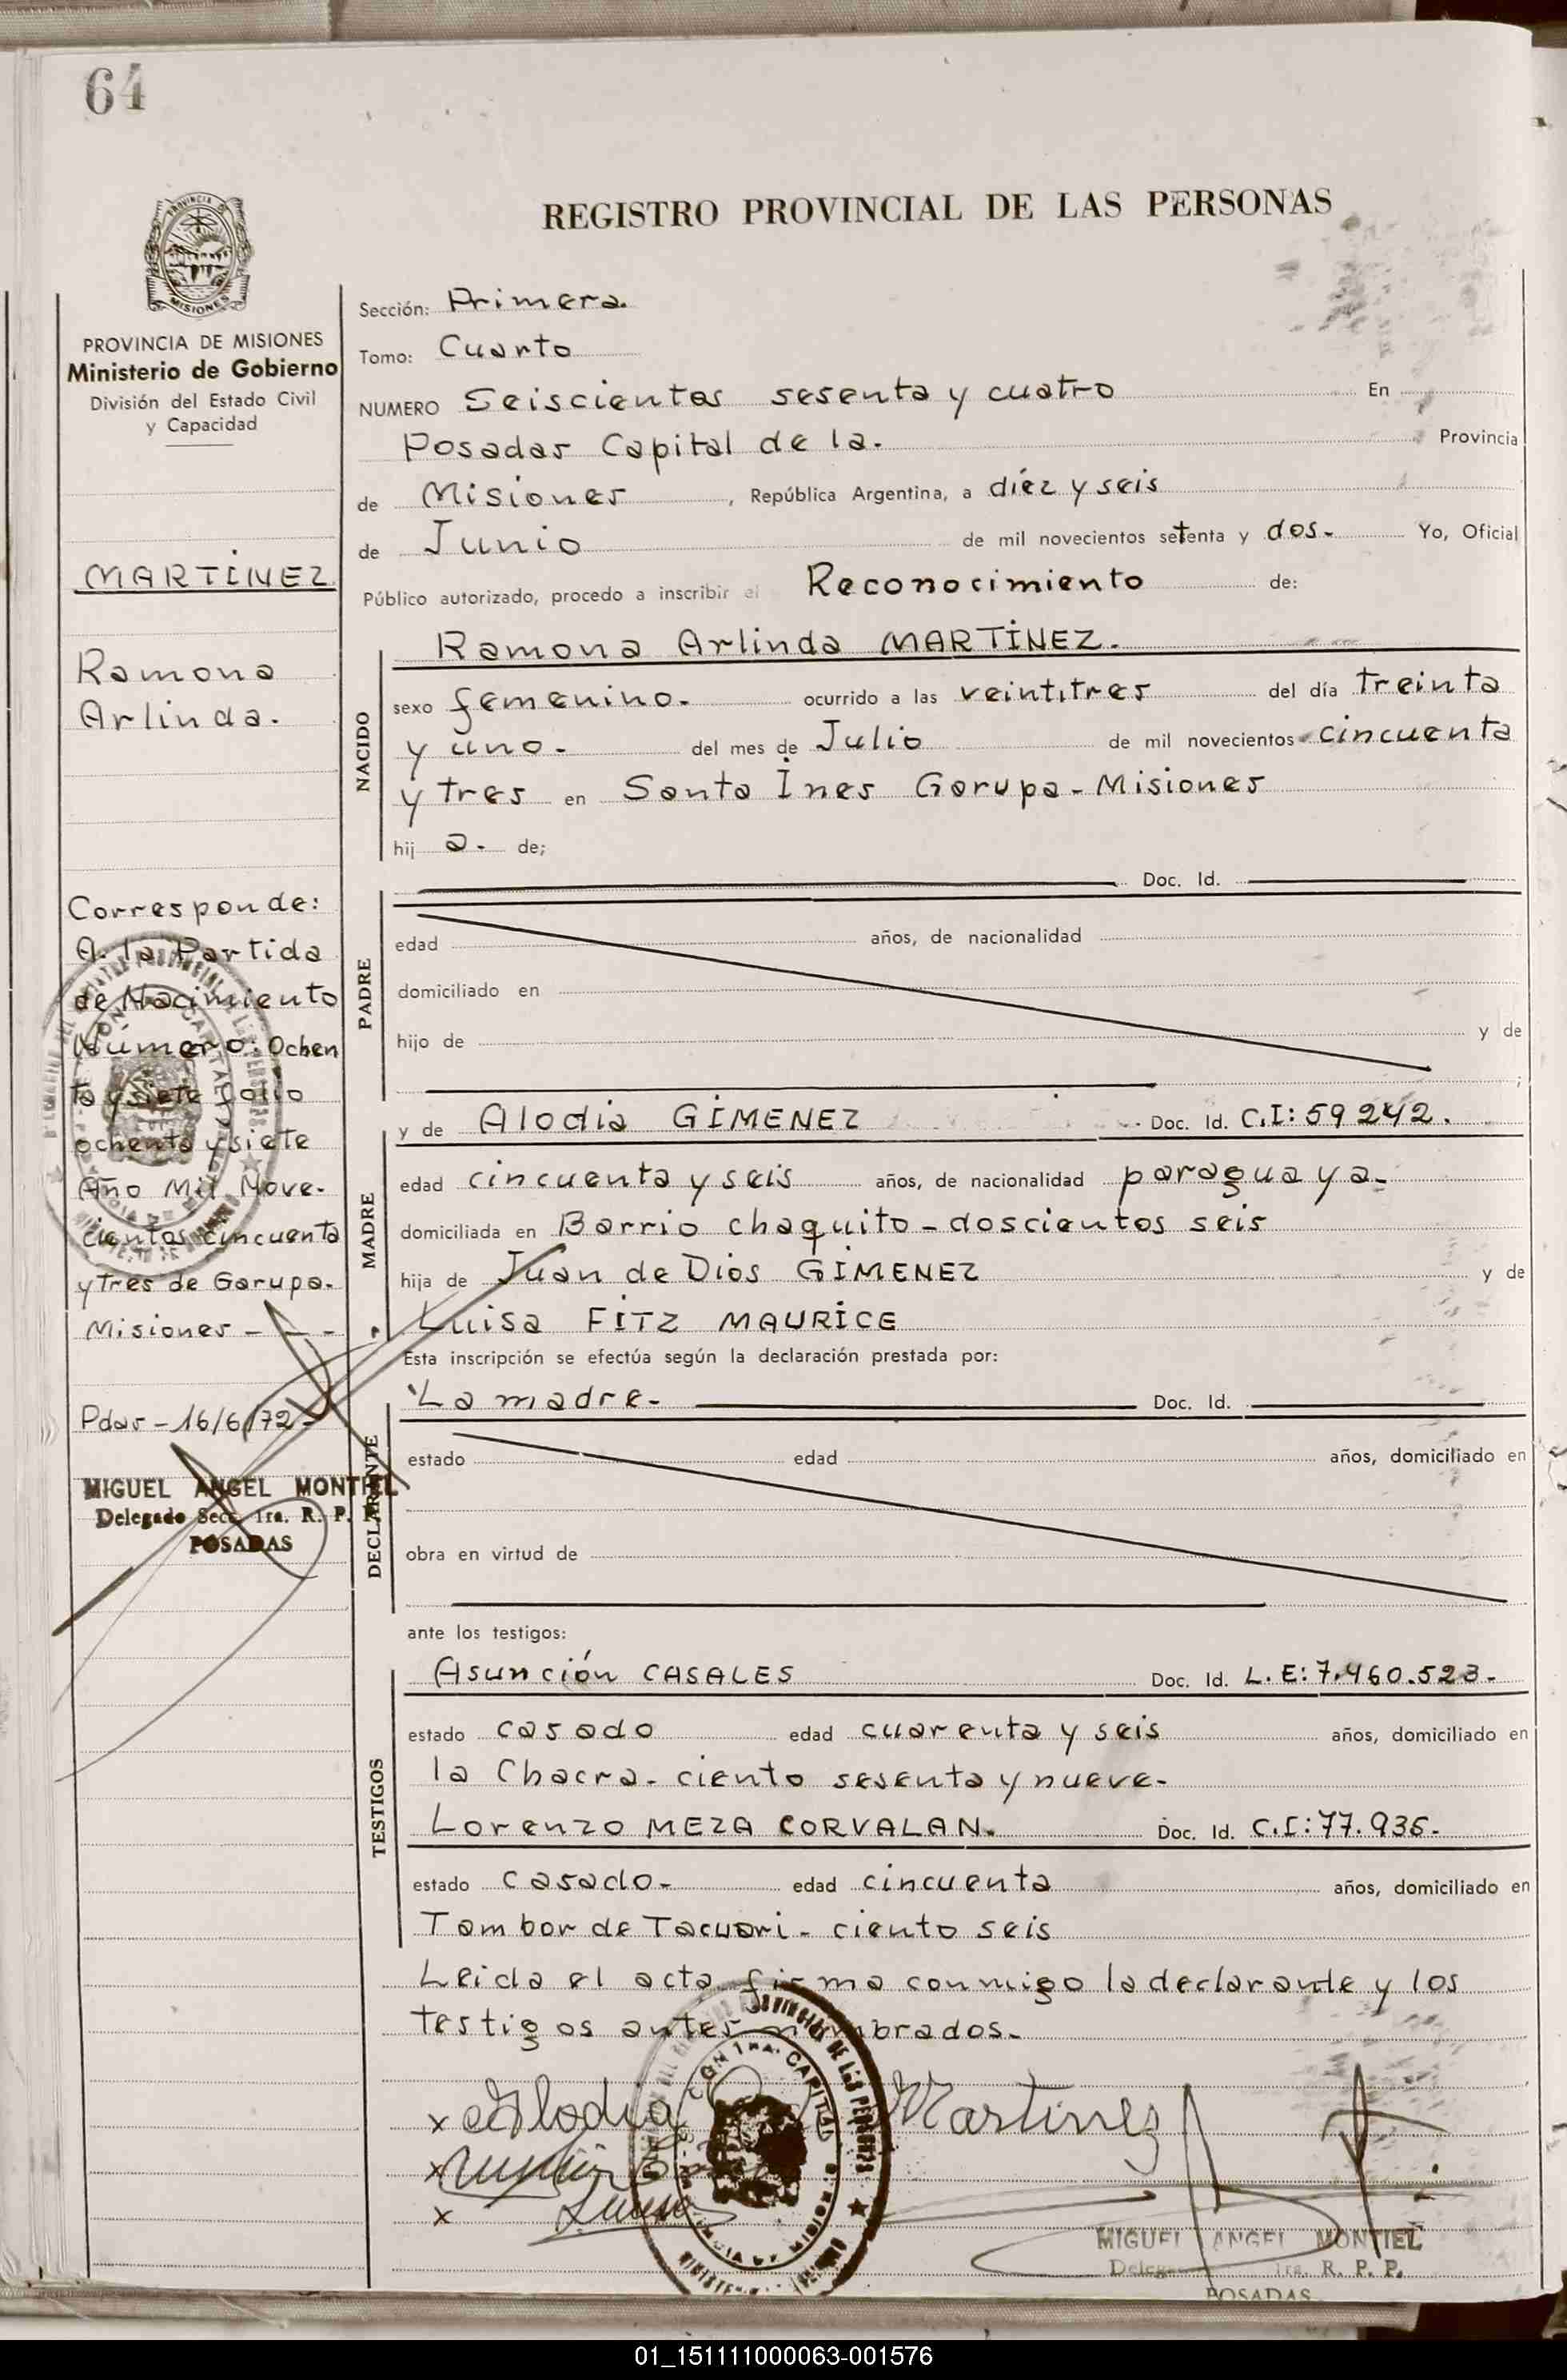 64
REGISTRO PROVINCIAL DE LAS PERSONAS
MISIONES
PROVINCIA DE MISIONES
Ministerio de Gobierno
División del Estado Civil
y Capacidad
MARTINEZ
Ramona
Arlinda.
Corresponde:
A. la Partida
de Nacimiento
Número: Ochen
ta y siete folio
ochenta y siete
Año Mil Nove-
cientos cincuenta
y Tres de Garupa.
Misiones - - -
Pdas - 16/6/72 -
MIGUEL ANGEL MONTIEL
Delegado Secc. 1ra. R. P. P.
POSADAS
Sección: Primera.
Tomo: Cuarto
NUMERO Seiscientos sesenta y cuatro En
Posadas Capital de la. Provincia
de Misiones, República Argentina, a diez y seis
de Junio de mil novecientos setenta y dos. Yo, Oficial
Público autorizado, procedo a inscribir el Reconocimiento de:
Ramona Arlinda MARTINEZ.
NACIDO
sexo femenino. ocurrido a las veintitres del día treinta
y uno. del mes de Julio de mil novecientos cincuenta
y tres en Santa Ines Garupa - Misiones
hij a. de;
Doc. Id.
PADRE
edad años, de nacionalidad
domiciliado en
hijo de y de
;
MADRE
y de Alodia GIMENEZ Doc. Id. C.I: 59242.
edad cincuenta y seis años, de nacionalidad paraguaya.
domiciliada en Barrio chaquito - doscientos seis
hija de Juan de Dios GIMENEZ y de
Luisa FITZ MAURICE
Esta inscripción se efectúa según la declaración prestada por:
La madre. Doc. Id.
DECLARANTE
estado edad años, domiciliado en
obra en virtud de
ante los testigos:
TESTIGOS
Asunción CASALES Doc. Id. L.E: 7.460.523.
estado casado edad cuarenta y seis años, domiciliado en
la Chacra - ciento sesenta y nueve.
Lorenzo MEZA CORVALAN. Doc. Id. C.I: 77.936.
estado casado. edad cincuenta años, domiciliado en
Tambor de Tacuari - ciento seis
Leida el acta firma conmigo la declarante y los
testigos antes nombrados.
x Alodia Martinez
x
x
MIGUEL ANGEL MONTIEL
1ra. R. P. P.
POSADAS
01_151111000063-001576